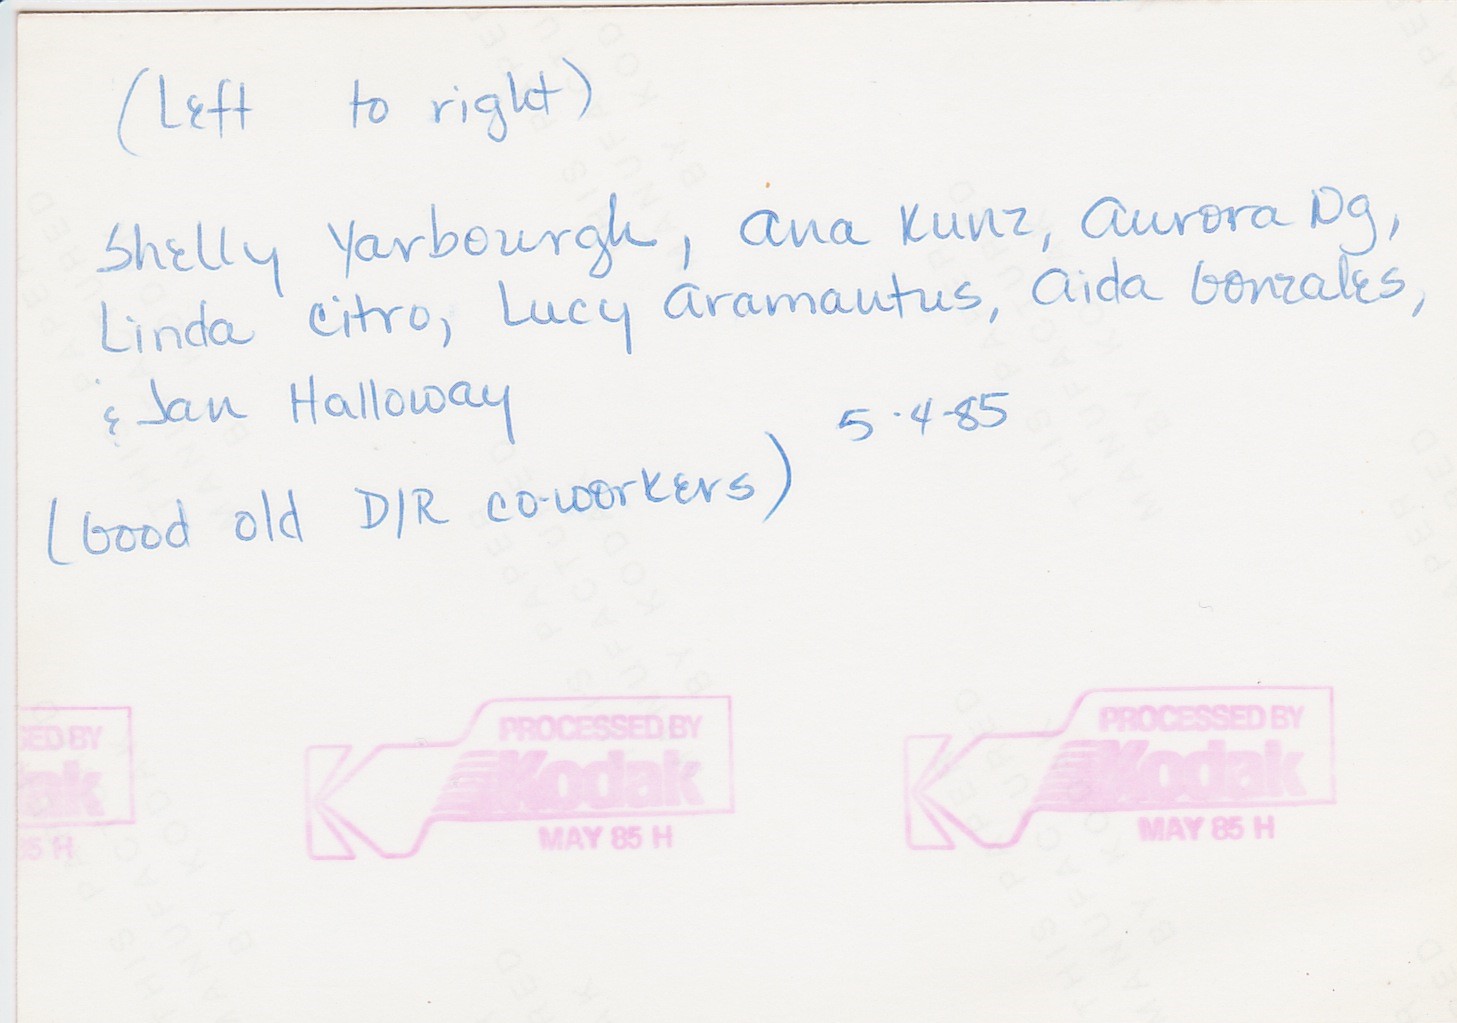 (Left to right)
Shelly Yarbourgh, Ana Kunz, Aurora Ng,
Linda Citro, Lucy Aramautus, Aida Gonzales,
& Jan Halloway
5-4-85
(Good old D/R co-workers)
ED BY
ak
85 H
PROCESSED BY
Kodak
MAY 85 H
PROCESSED BY
Kodak
MAY 85 H